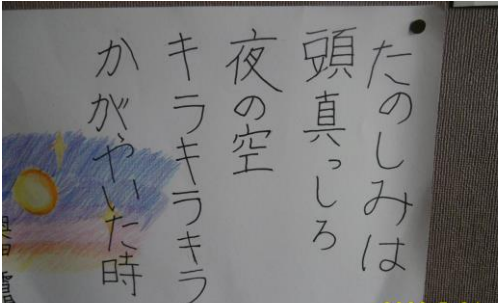 たのしみは
頭真っしろ
夜の空
キラキラキラ
かがやいた時